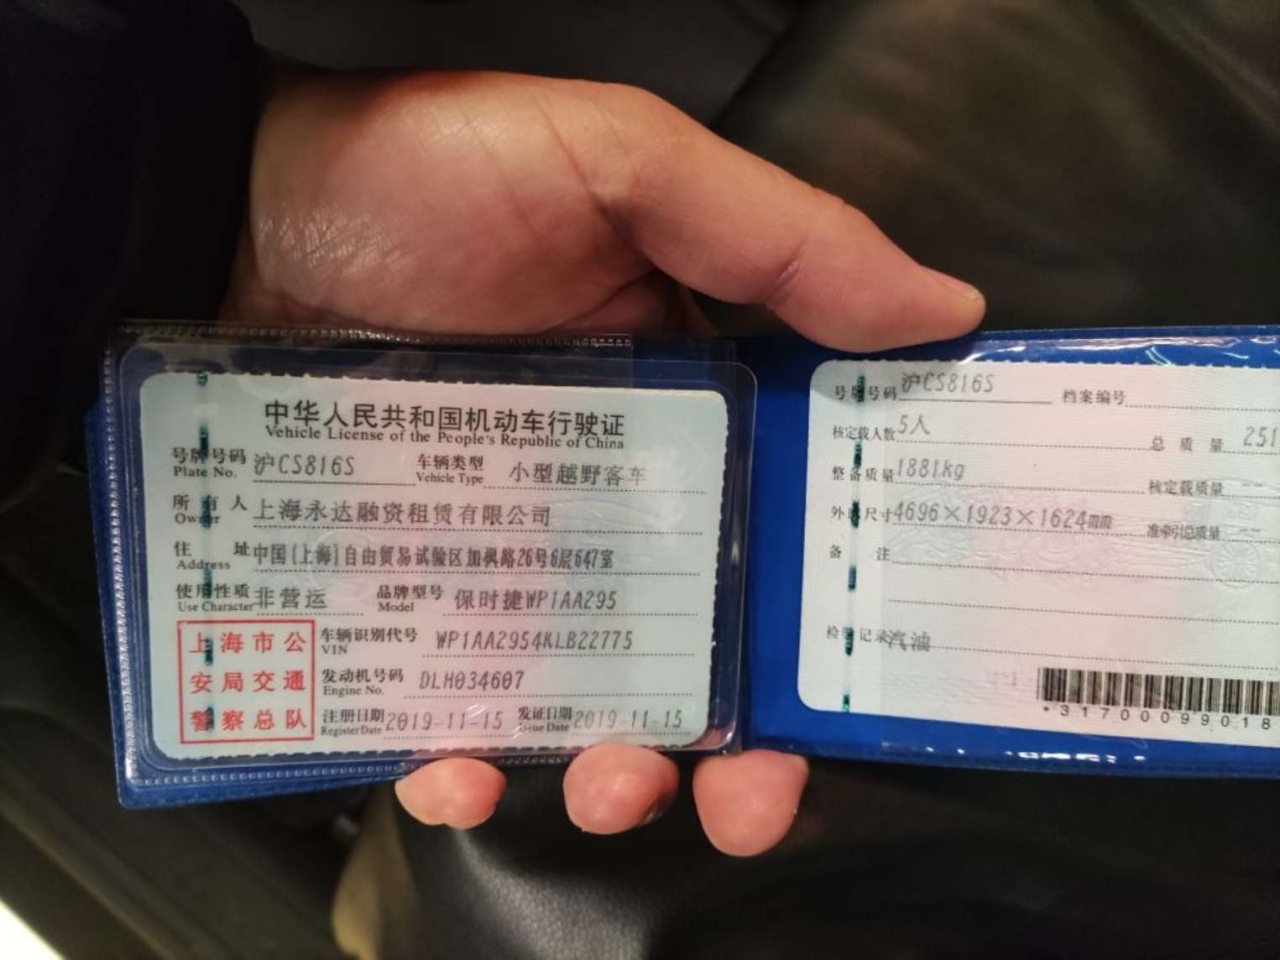 中华人民共和国机动车行驶证
Vehicle License of the People's Republic of China
号牌号码 沪CS816S 车辆类型 小型越野客车
Plate No. Vehicle Type
所有人 上海永达融资租赁有限公司
Owner
住址 中国(上海)自由贸易试验区加枫路26号6层647室
Address
使用性质 非营运 品牌型号 保时捷WP1AA295
Use Character Model
上海市公
安局交通
警察总队
车辆识别代号 WP1AA2954KLB22775
VIN
发动机号码 DLH034607
Engine No.
注册日期 2019-11-15 发证日期 2019-11-15
Register Date Issue Date
号牌号码 沪CS816S 档案编号
核定载人数 5人 总质量 251
整备质量 1881kg 核定载质量 --
外廓尺寸 4696×1923×1624mm 准牵引总质量 --
备注
检验记录 汽油
*3170009901 8